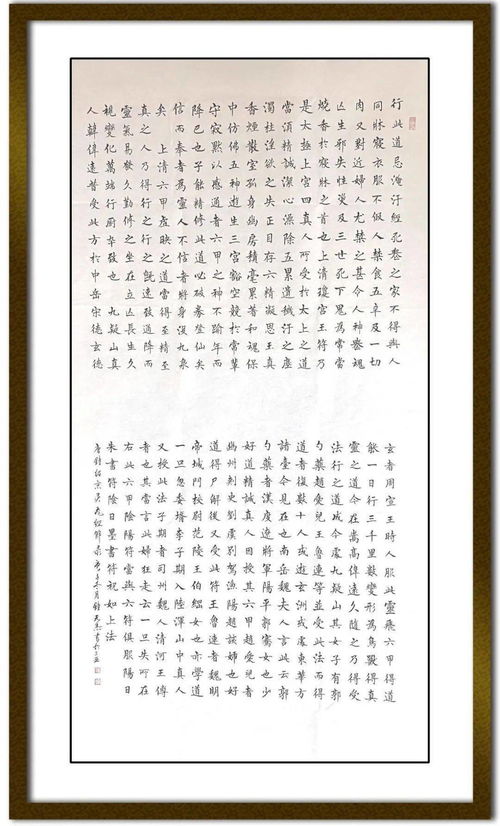 行此道忌淹汙經死喪之家不得與人
同牀寢衣服不假人禁食五辛及一切
肉又對近婦人尤禁之甚令人神喪魂
亡生邪失性災及三世死下鬼爲常當
燒香於寢牀之首也上清瓊宮玉符乃
是太極上宮四真人所受於太上之道
當須精誠潔心澡除五累遺穢汙之塵
濁杜淫欲之失正目存六精凝思玉真
香煙散室孤身幽房積毫累著和魂保
中仿佛五神遊生三宮豁空競於常輩
守寂默以感通者六甲之神不踰年而
降已也子能精修此道必破券登仙矣
信而奉者爲靈人不信者將身沒九泉
矣 上清六甲虛映之道當得至精至
真之人乃得行之行之既速致通降而
靈氣易發久勤修之坐在立亡長生久
視變化萬端行廚卒致也 九疑山真
人韓偉遠昔受此方於中岳宋德玄德
玄者周宣王時人服此靈飛六甲得道
能一日行三千里數變形爲鳥獸得真
靈之道今在嵩高偉遠久隨之乃得受
法行之道成今處九疑山其女子有郭
勺藥趙愛兒王魯連等並受此法而得
道者復數十人或遊玄洲或處東華方
諸臺今見在也南岳魏夫人言此云郭
勺藥者漢度遼將軍陽平郭騫女也少
好道精誠真人因授其六甲趙愛兒者
幽州刺史劉虞別駕漁陽趙該姊也好
道得尸解後又受此符王魯連者魏明
帝城門校尉范陵王伯綱女也亦學道
一旦忽委婿李子期入陸渾山中真人
又授此法子期者司州魏人清河王傅
者也其常言此婦狂走云一旦失所在
右此六甲陰陽符當與六符俱服陽日
朱書符陰日墨書符祝如上法
唐鍾紹京靈飛經節錄